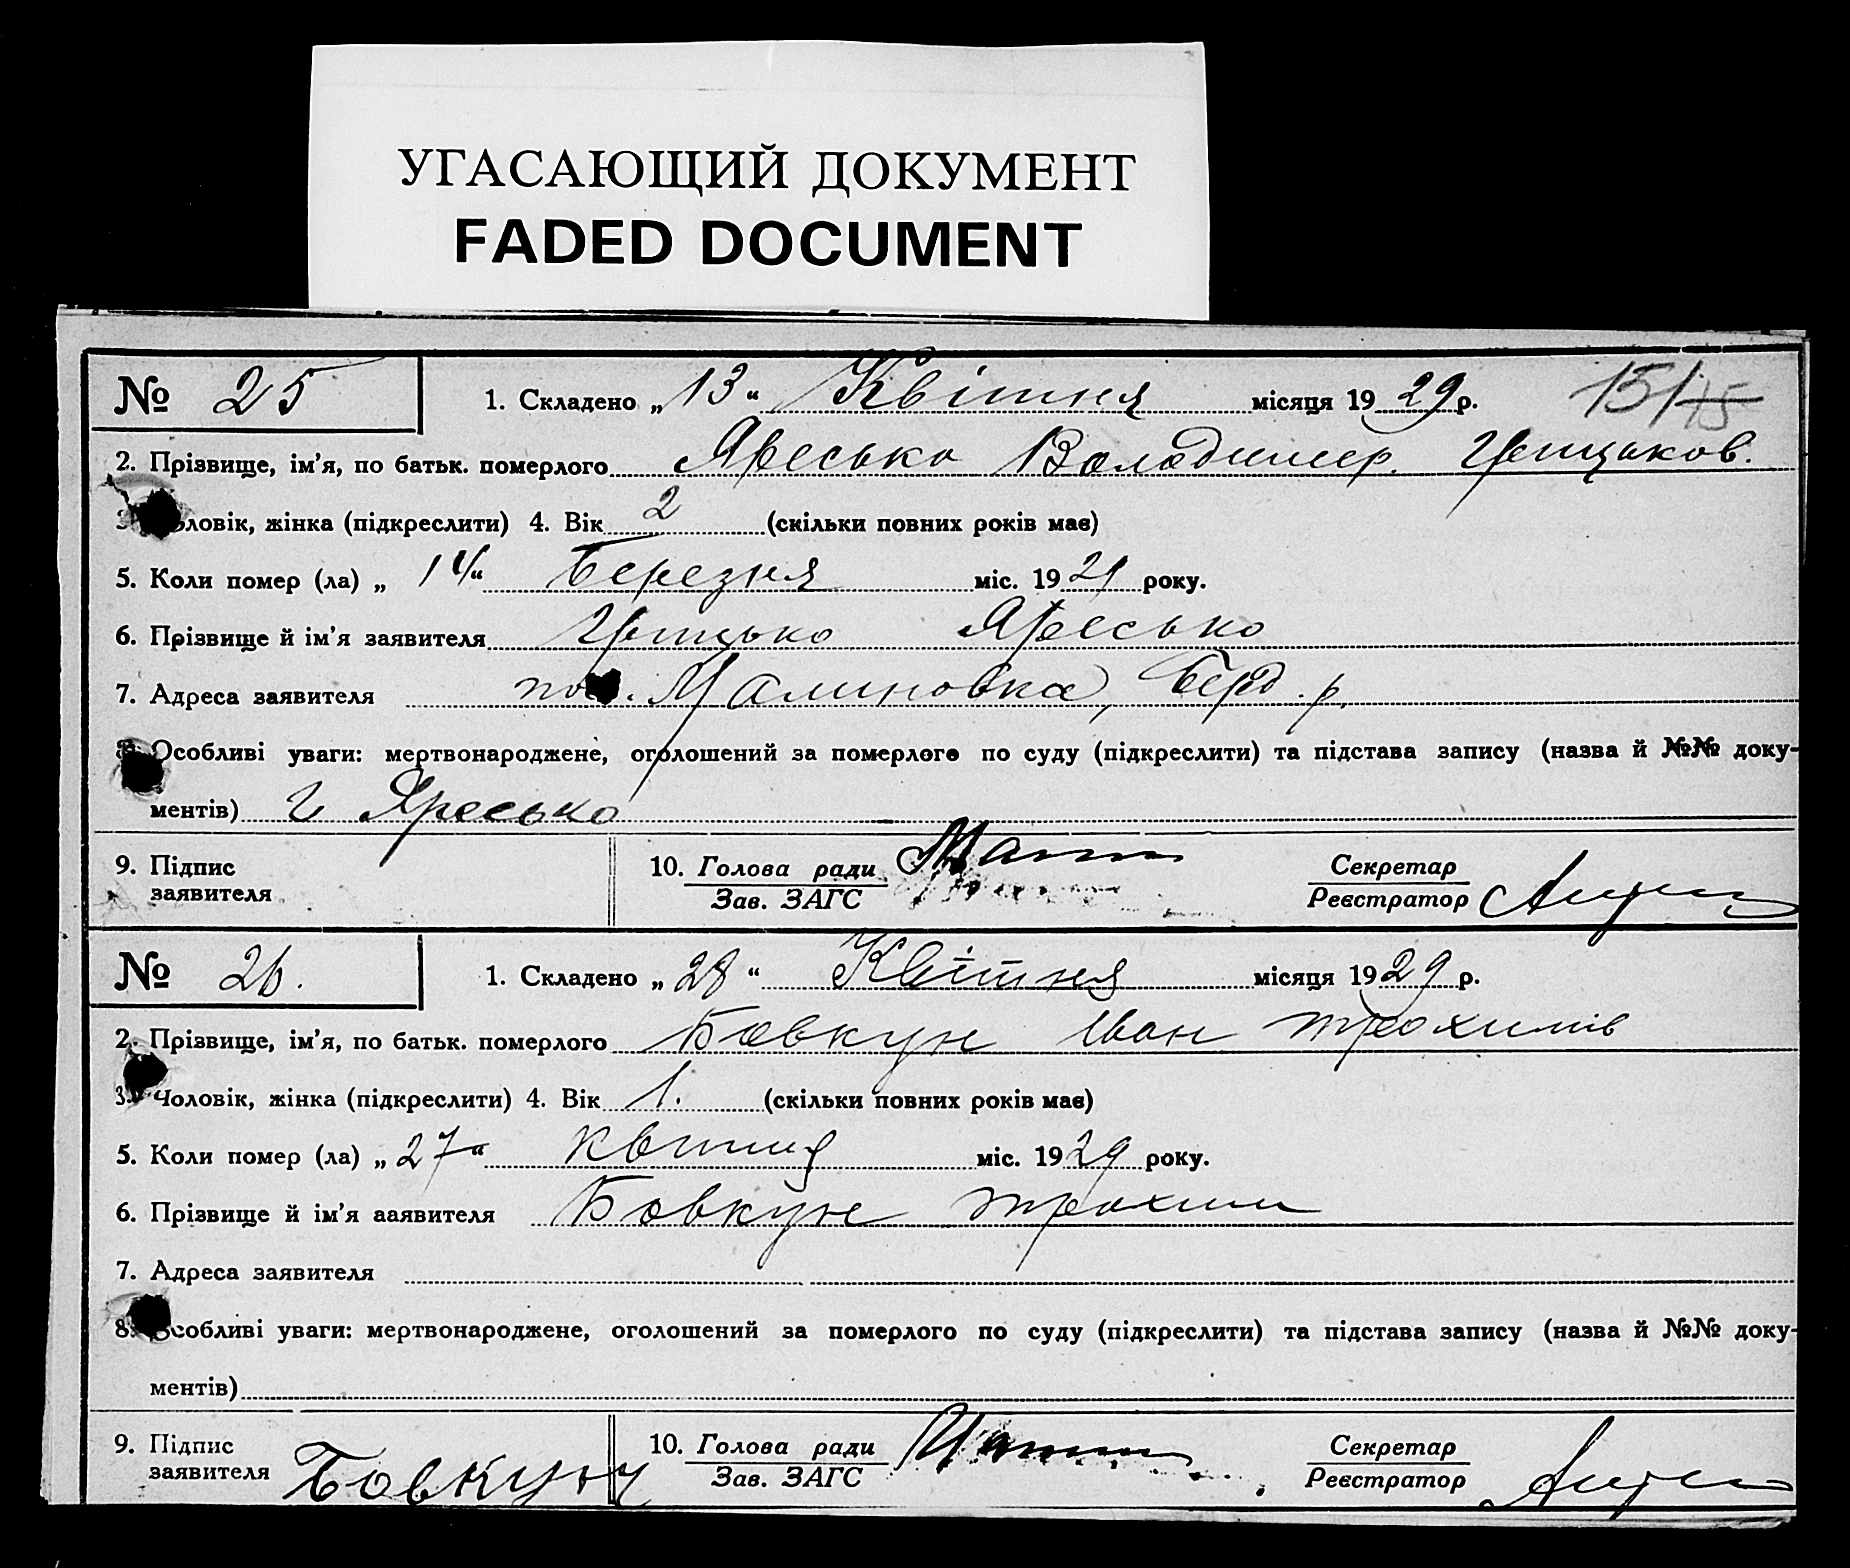 УГАСАЮЩИЙ ДОКУМЕНТ
FADED DOCUMENT
№ 25
1. Складено „13“ Квітня місяця 1929 р.
151/15
2. Прізвище, ім'я, по батьк. померлого Яресько Володимер. Грицьков.
3. Чоловік, жінка (підкреслити) 4. Вік 2 (скільки повних років має)
5. Коли помер (ла) „14“ Березня міс. 1921 року.
6. Прізвище й ім'я заявителя Грицько Яресько
7. Адреса заявителя Малиновка, Берд. р.
8. Особливі уваги: мертвонароджене, оголошений за померлого по суду (підкреслити) та підстава запису (назва й №№ доку-
ментів) Г Яресько
9. Підпис заявителя
10. Голова ради
Зав. ЗАГС
Секретар
Реєстратор
№ 26.
1. Складено „28“ Квітня місяця 1929 р.
2. Прізвище, ім'я, по батьк. померлого Бовкун Іван Трохимів
3. Чоловік, жінка (підкреслити) 4. Вік 1. (скільки повних років має)
5. Коли помер (ла) „27“ квітня міс. 1929 року.
6. Прізвище й ім'я ааявителя Бовкун Трохим
7. Адреса заявителя
8. Особливі уваги: мертвонароджене, оголошений за померлого по суду (підкреслити) та підстава запису (назва й №№ доку-
ментів)
9. Підпис заявителя Бовкун
10. Голова ради
Зав. ЗАГС
Секретар
Реєстратор